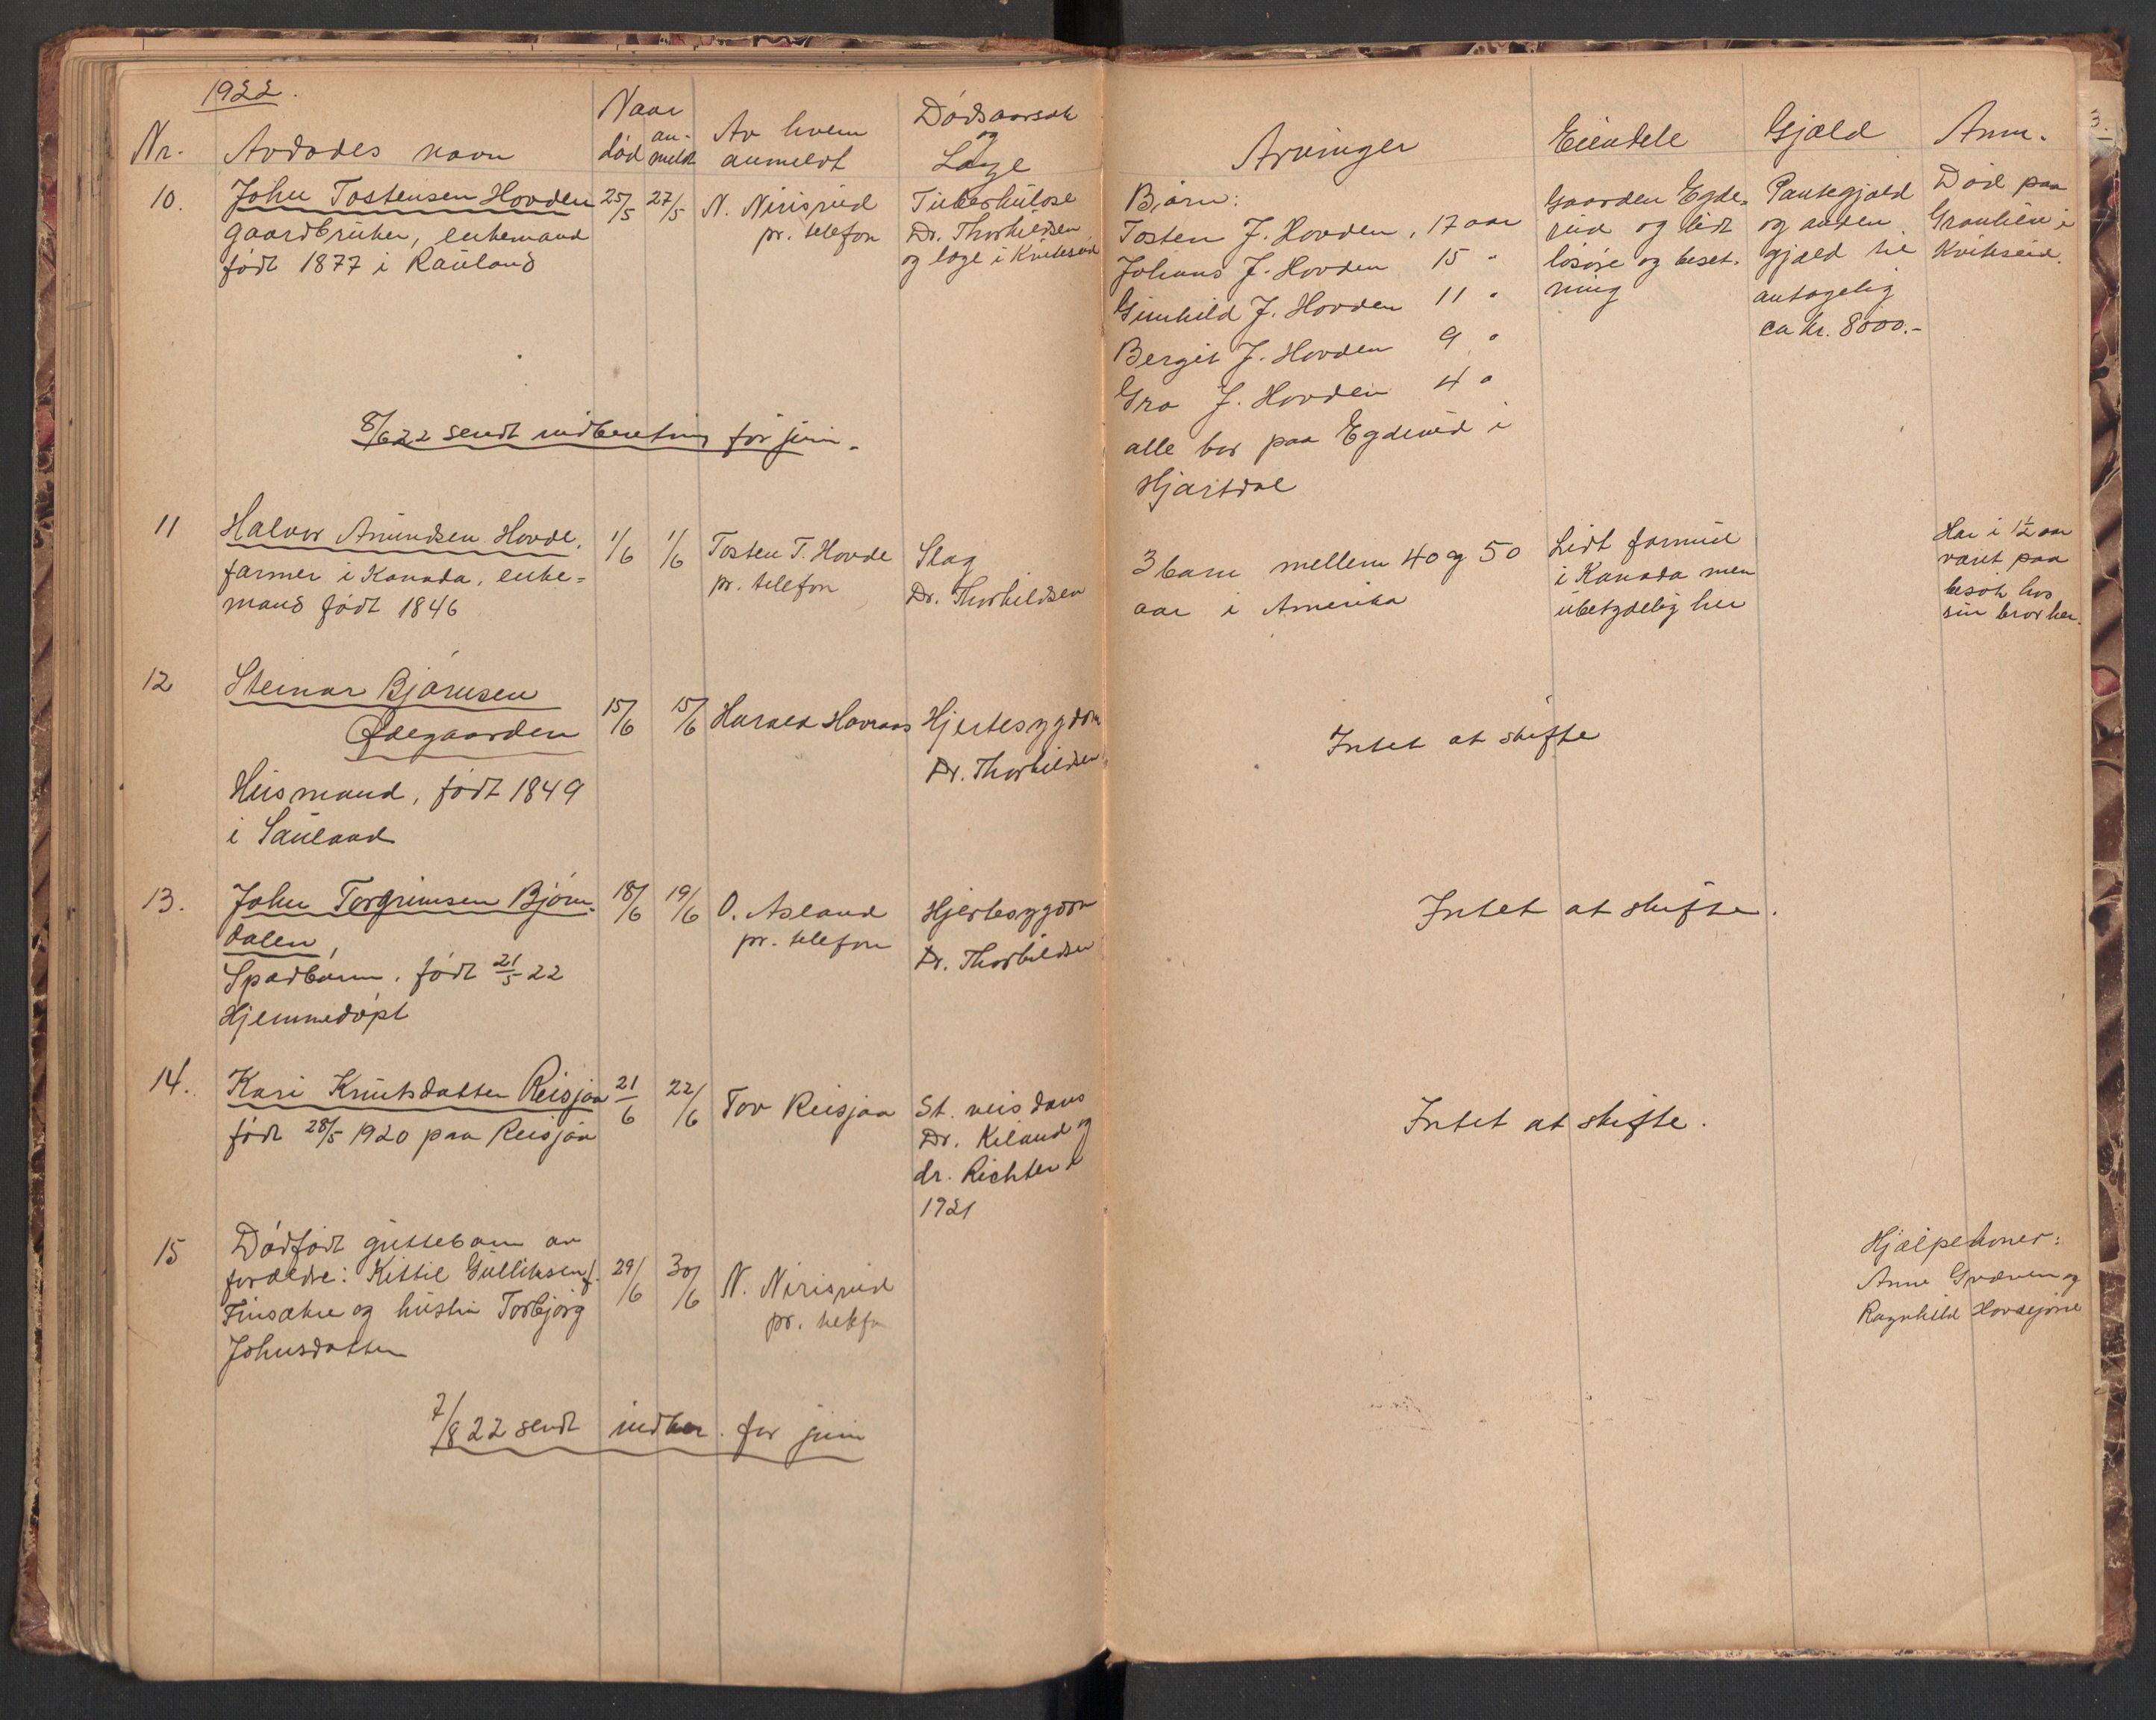 1922.
Nr.
Avdødes navn
Naar
død
an-
meldt
Av hvem
anmeldt
Dødsaarsak
og
Læge
Arvinger
Eiendele
Gjæld
Anm.
10.
John Tostensen Hovden
gaardbruker, enkemand
født 1877 i Rauland
25/5
27/5
N. Nirisrud
pr. telefon
Tuberkulose
Dr. Thorkildsen
og læge i Kviteseid
Børn:
Tosten J. Hovden, 17 aar
Johans J. Hovden 15 "
Gunhild J. Hovden 11 "
Bergit J. Hovden 9 "
Gro J. Hovden 4 "
alle bor paa Egderud i
Hjartdal
Gaarden Egde-
rud og lidt
løsøre og beset-
ning
Pantegjæld
og anden
gjæld til
antagelig
ca kr. 8000.-
Død paa
Granlien i
Kviteseid.
8/6 22 sendt indberetning for juni.
11
Halvor Amundsen Hovde,
farmer i Kanada, enke-
mand født 1846
1/6
1/6
Tosten T. Hovde
pr. telefon
Slag
Dr. Thorkildsen
3 barn mellem 40 og 50
aar i Amerika
Lidt formue
i Kanada men
ubetydelig her
Har i 1½ aar
været paa
besøk hos
sin bror her.
12
Steinar Bjørnsen
Ødegaarden
Husmand, født 1849
i Sauland
15/6
15/6
Harald Hovraas
Hjertesygdom
Dr. Thorkildsen
Intet at skifte
13.
John Torgrimsen Bjørn-
dalen,
Spædbarn. født 21/5 22
Hjemmedøpt
18/6
19/6
O. Asland
pr. telefon
Hjertesygdom
Dr. Thorkildsen
Intet at skifte.
14.
Kari Knutsdatter Reisjaa
født 28/5 1920 paa Reisjaa
21/6
22/6
Tov Reisjaa
St. veisdans
Dr. Kiland og
dr. Richter i
1921
Intet at skifte.
15
Dødfødt guttebarn av
forældre: Kittil Gulliksen
Finsakre og hustru Torbjørg
Johnsdatter
29/6
30/6
N. Nirisrud
pr. telefon
Hjælpekoner:
Anne Græven og
Ragnhild Hovdejore
7/8 22 sendt indber. for juni